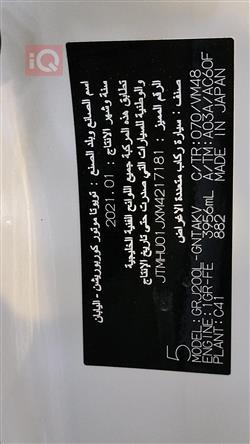 IQ
اسم الصانع وبلد الصنع : تويوتا موتور كوربوريشن - اليابان
سنة وشهر الإنتاج : 01 . 2021
تطابق هذه المركبة جميع اللوائح الفنية الخليجية
والوطنية للسيارات التي صدرت حتى تاريخ الإنتاج
الرقم المميز : JTMHU01JXM4217181
صنف : سيارة ركاب متعددة الأغراض
5
MODEL: GRJ200L-GNTAKV C/TR: 070/VM48
ENGINE: 1GR-FE 3956mL A/TM: A03A/AC60F
PLANT: C41 882 MADE IN JAPAN